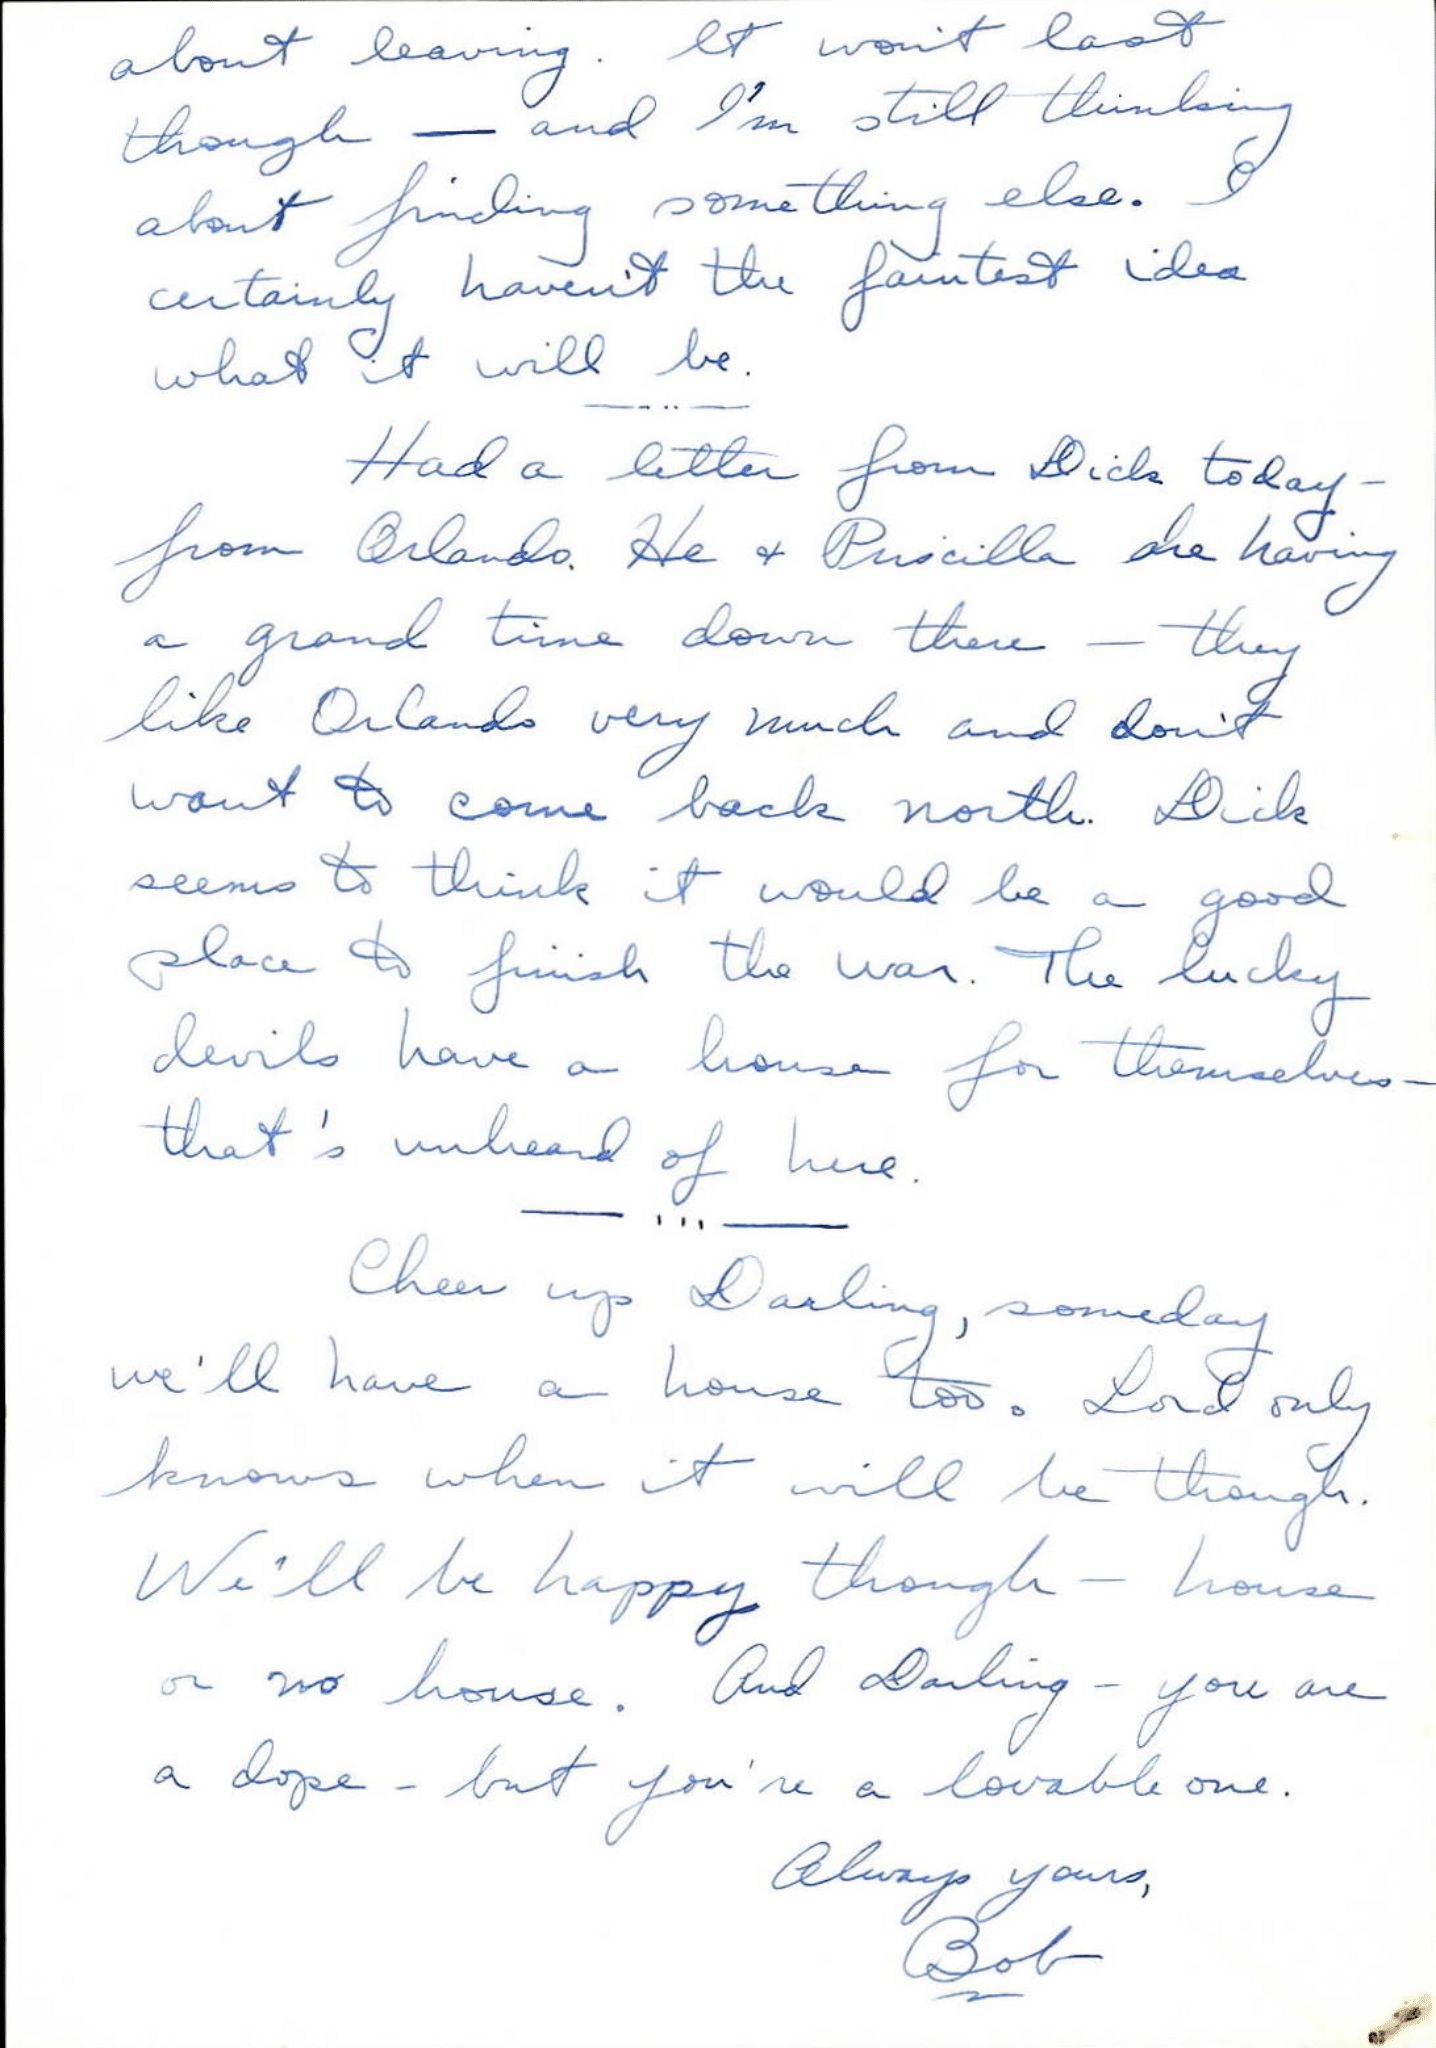 about leaving. It won't last
though — and I'm still thinking
about finding something else. I
certainly haven't the faintest idea
what it will be.
Had a letter from Dick today -
from Orlando. He & Priscilla are having
a grand time down there — they
like Orlando very much and don't
want to come back north. Dick
seems to think it would be a good
place to finish the war. The lucky
devils have a house for themselves -
that's unheard of here.
Cheer up Darling, someday
we'll have a house too. Lord only
knows when it will be though.
We'll be happy though - house
or no house. And Darling - you are
a dope - but you're a lovable one.
Always yours,
Bob